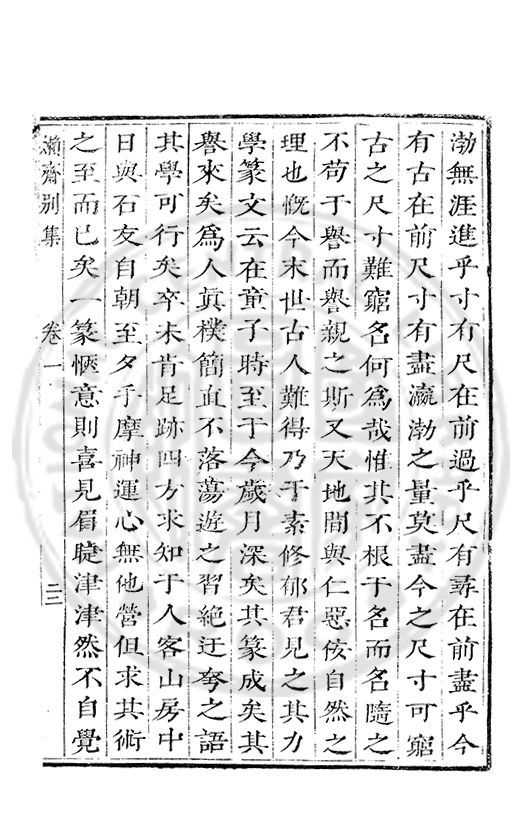 渤無涯進乎寸有尺在前過乎尺有尋在前盡乎今
有古在前尺寸有盡瀛渤之量莫盡今之尺寸可窮
古之尺寸難窮名何為哉惟其不根于名而名隨之
不苟于譽而譽親之斯又天地間與仁惡佞自然之
理也慨今末世古人難得乃于素修郁君見之其力
學篆文云在童子時至于今歲月深矣其篆成矣其
譽來矣為人眞樸簡直不落蕩遊之習絕迂夸之語
其學可行矣卒未肯足跡四方求知于人客山房中
日與石友自朝至夕手摩神運心無他營但求其術
之至而已矣一篆愜意則喜見眉睫津津然不自覺
嬾齋别集 卷一 二三